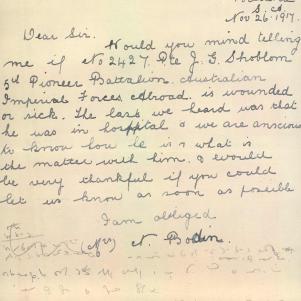 Nov 26. 1917.
Dear Sir.
Would you mind telling
me if No 2427. Pte J. G. Shoblom
5th Pioneer Battalion. Australian
Imperial Forces Abroad. is wounded
or sick. The last we heard was that
he was in hospital & we are anxious
to know how he is & what is
the matter with him. & would
be very thankful if you could
let us know as soon as possible
I am obliged
(Mrs) N. Bodin.